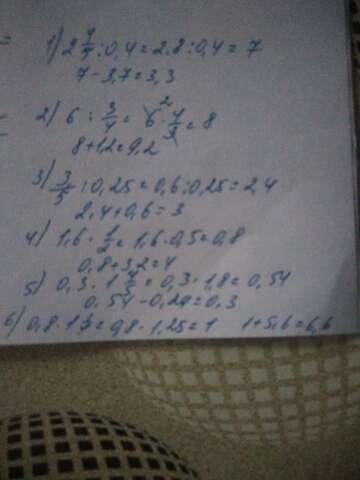 1) 2 4/5 : 0,4 = 2.8 : 0,4 = 7
7 - 3,7 = 3,3
2) 6 : 3/4 = 6 · 4/3 = 8
8 + 1,2 = 9.2
3) 3/5 : 0,25 = 0,6 : 0,25 = 2,4
2,4 + 0,6 = 3
4) 1,6 · 1/2 = 1,6 · 0,5 = 0,8
0,8 + 3,2 = 4
5) 0,3 · 1 4/5 = 0,3 · 1,8 = 0,54
0,54 - 0,24 = 0,3
6) 0,8 · 1 1/4 = 0,8 · 1,25 = 1 1 + 5,6 = 6,6